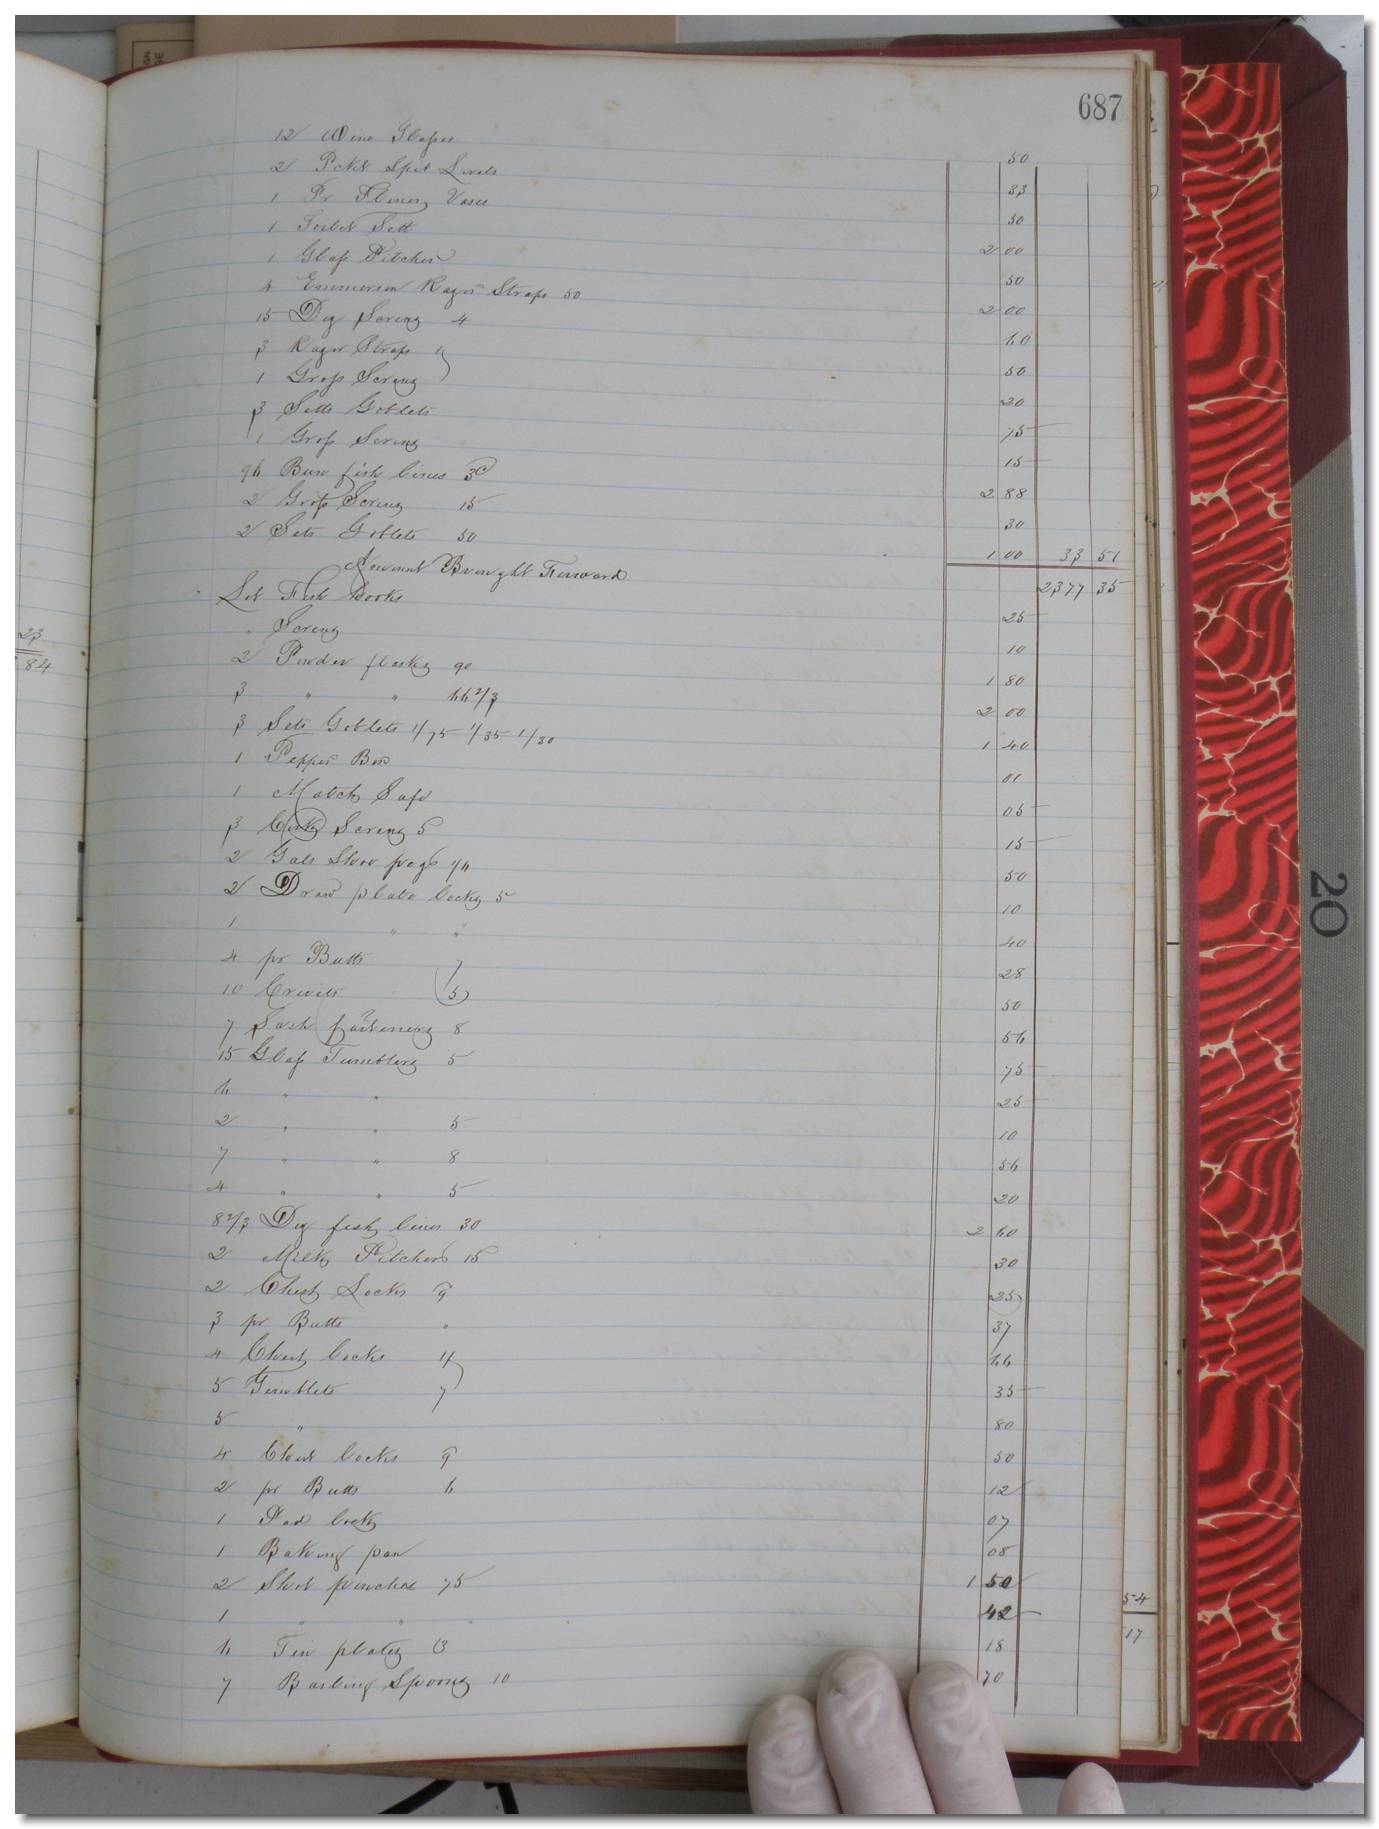 687
12 Wine Glasses 50
2 Pckt Spit Levels 33
1 Pr Flower Vases 50
1 Toilet Sett 2 00
1 Glass Pitcher 50
4 Emmerson Razor Straps 50 2 00
15 Doz Screws 4 60
3 Razor Straps 50
1 Gross Screws 20
3 Setts Goblets 75
1 Gross Screws 15
96 Bun fish lines 3c 2 88
2 Gross Screws 15 30
2 Sets Goblets 50 1 00 33 51
Amount Brought Forward 2377 35
Lot Fish Hooks 25
" Screws 10
2 Powder flasks 90 1 80
3 " " 66 2/3 2 00
3 Sets Goblets 1/75 1/35 1/30 1 40
1 Pepper Box 01
1 Match Safe 05
3 Cork Screws 5 15
2 Gals Shoe pegs 50
2 Draw plate locks 5 10
1 " " 40
4 pr Butts 7 28
10 Cruets 5 50
7 Sash fasteners 8 56
15 Glass Tumblers 5 75
6 " " 25
2 " " 5 10
7 " " 8 56
4 " " 5 20
8 2/3 Doz fish lines 30 2 60
2 Milk Pitchers 15 30
2 Chest Locks 25
3 pr Butts " 37
4 Chest locks 11 44
5 Gimblets 7 35
5 " 80
4 Chest locks 9 50
2 pr Butts 6 12
1 Pad lock 07
1 Baking pan 08
2 Shot pouches 75 1 50
1 " " 42
6 Tin plates 3 18
7 Basting Spoons 10 70
23
84
54
17
20